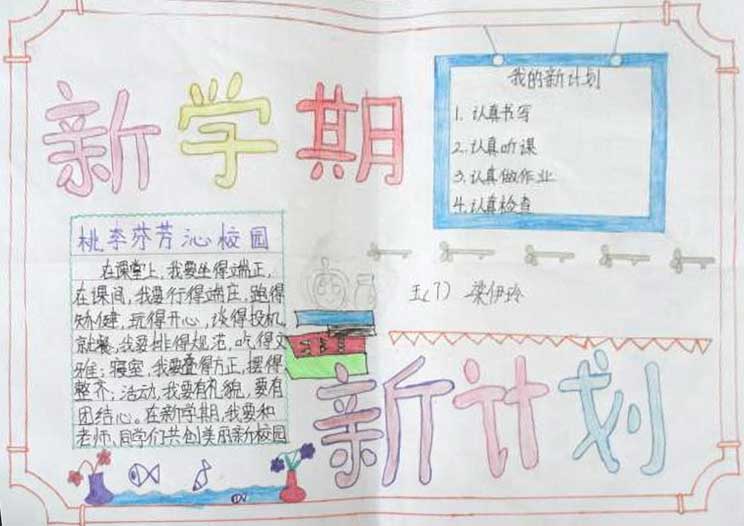 新学期
我的新计划
1. 认真书写
2. 认真听课
3. 认真做作业
4. 认真检查
桃李芬芳沁校园
在课堂上,我要坐得端正,
在课间,我要行得端庄,跑得
矫健,玩得开心,谈得投机,
就餐,我要排得规范,吃得文
雅;寝室,我要叠得方正,摆得
整齐;活动,我要有礼貌,要有
团结心。在新学期,我要和
老师、同学们共创美丽新校园
五(7) 梁伊玲
新计划